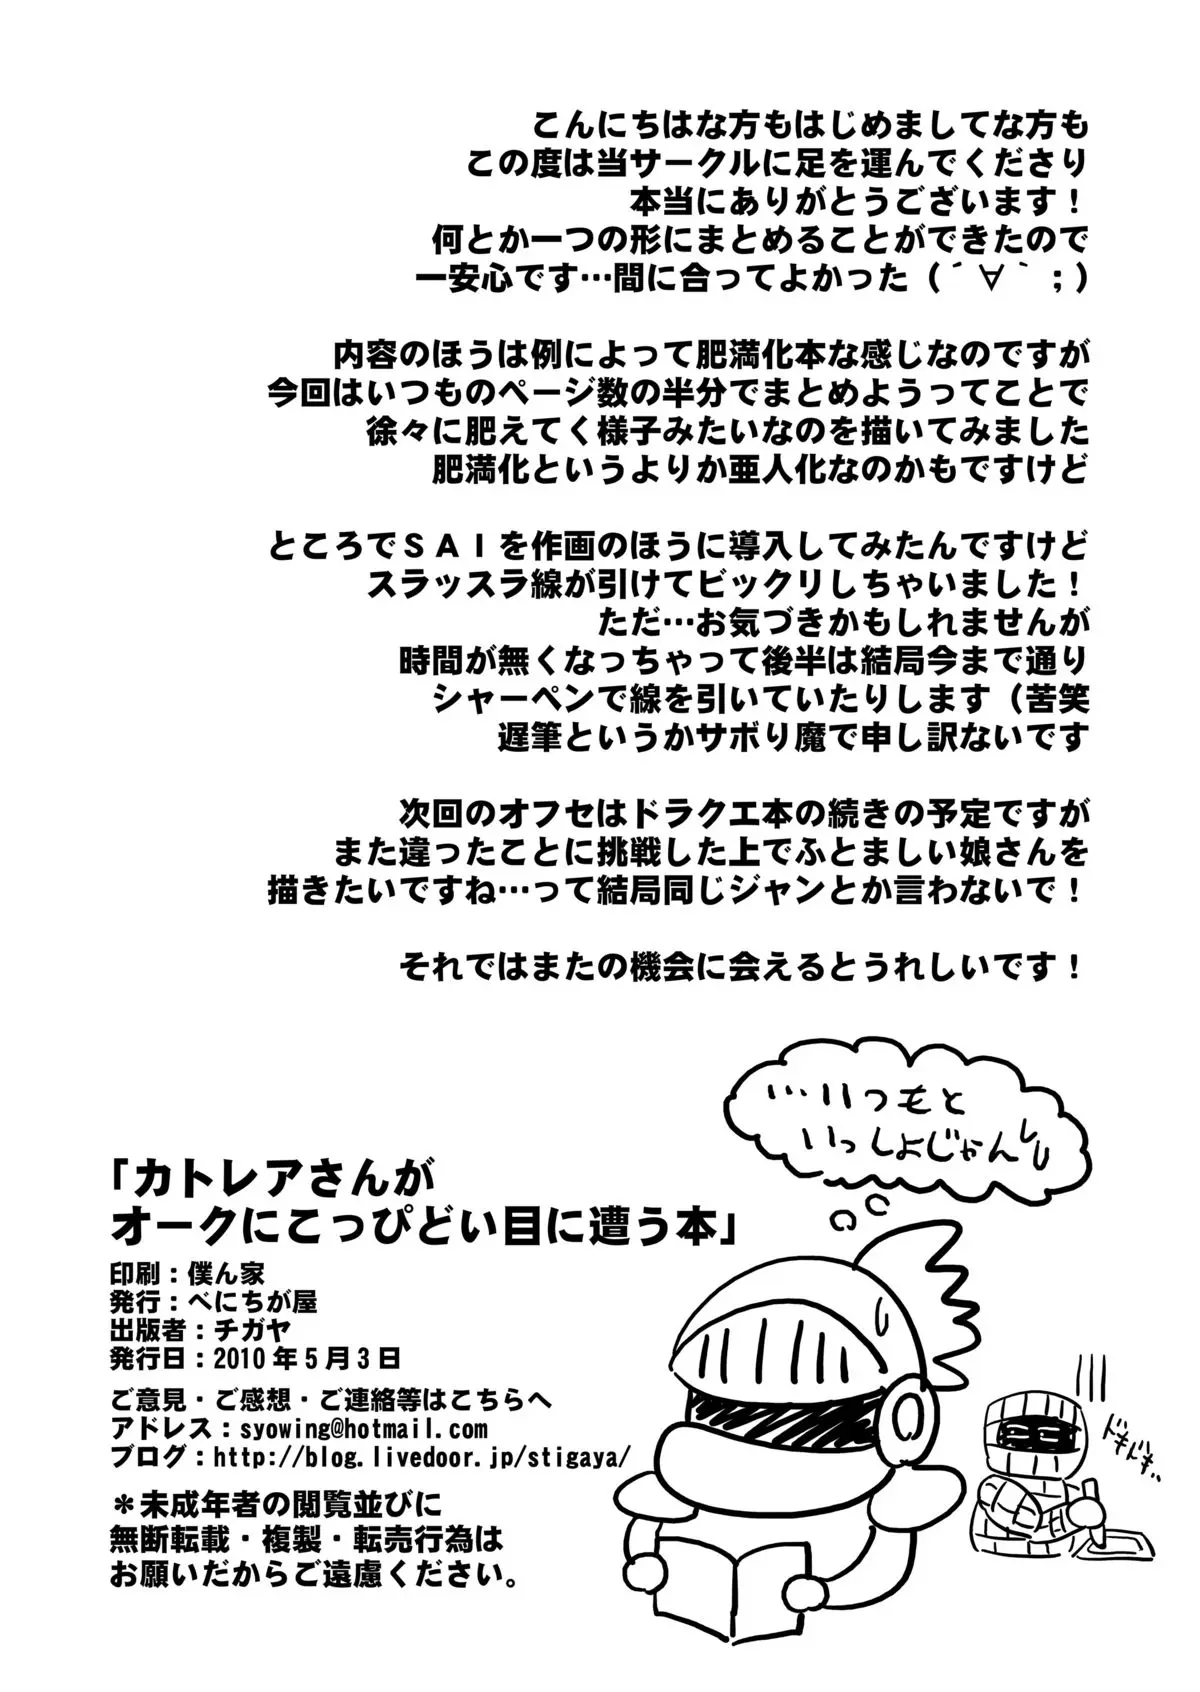 こんにちはな方もはじめましてな方も
この度は当サークルに足を運んでくださり
本当にありがとうございます！
何とか一つの形にまとめることができたので
一安心です…間に合ってよかった（´∀｀；）
内容のほうは例によって肥満化本な感じなのですが
今回はいつものページ数の半分でまとめようってことで
徐々に肥えてく様子みたいなのを描いてみました
肥満化というよりか亜人化なのかもですけど
ところでＳＡＩを作画のほうに導入してみたんですけど
スラッスラ線が引けてビックリしちゃいました！
ただ…お気づきかもしれませんが
時間が無くなっちゃって後半は結局今まで通り
シャーペンで線を引いていたりします（苦笑
遅筆というかサボり魔で申し訳ないです
次回のオフセはドラクエ本の続きの予定ですが
また違ったことに挑戦した上でふとましい娘さんを
描きたいですね…って結局同じジャンとか言わないで！
それではまたの機会に会えるとうれしいです！
…いつもと
いっしょじゃんしし
「カトレアさんが
オークにこっぴどい目に遭う本」
印刷：僕ん家
発行：べにちが屋
出版者：チガヤ
発行日：2010年5月3日
ご意見・ご感想・ご連絡等はこちらへ
アドレス：syowing@hotmail.com
ブログ：http://blog.livedoor.jp/stigaya/
＊未成年者の閲覧並びに
無断転載・複製・転売行為は
お願いだからご遠慮ください。
ドキドキ..